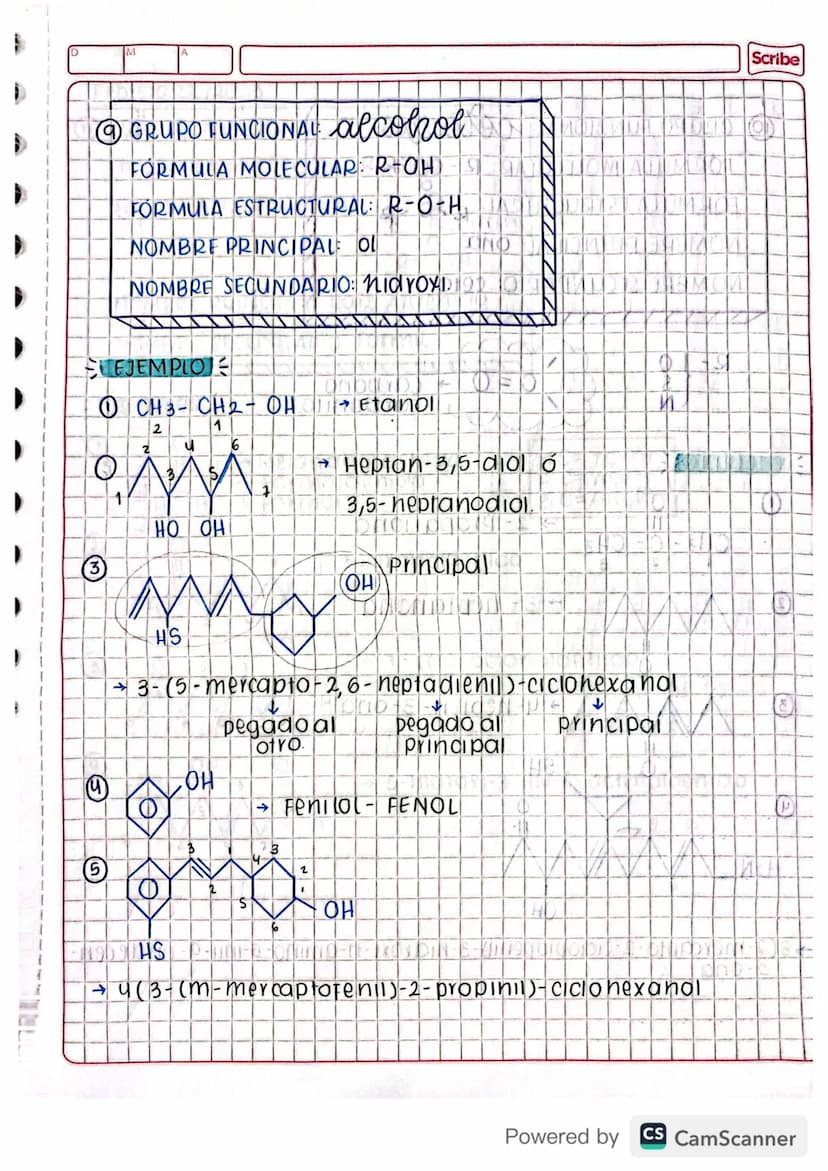 D M A
Scribe
9 GRUPO FUNCIONAL: alcohol
FÓRMULA MOLECULAR: R-OH
FÓRMULA ESTRUCTURAL: R-O-H
NOMBRE PRINCIPAL: ol
NOMBRE SECUNDARIO: hidroxi.
EJEMPLO
1 CH3-CH2-OH → Etanol
2 1
2 4 6
→ Heptan-3,5-diol ó
1 3 5 7
3,5-heptanodiol.
HO OH
3 OH Principal
HS
→ 3-(5-mercapto-2,6-heptadienil)-ciclohexanol
pegado al otro. pegado al principal principal
4 OH
→ Fenilol - FENOL
5 3 1 4 3 2
2 5 1 OH
6
HS
→ 4(3-(m-mercaptofenil)-2-propinil)-ciclohexanol
Powered by CS CamScanner